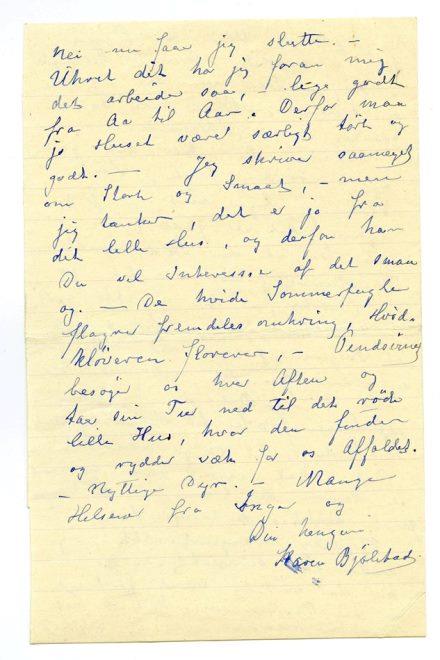 Nei nu faar jeg slutte. –
Uhret dit har jeg foran mig,
det arbeider saa, – lige godt
fra Aar til Aar. Derfor maa
jo Huset været særligt tört og
godt. – Jeg skriver saameget
om Stort og Smaat, – men
jeg tænker, det er jo fra
dit lille Hus, og derfor har
Du vel Interesse af det smaa
og. – De hvide Sommerfugle
flagrer fremdeles omkring, Hvid-
klöveren florerer, – Pindsvinet
besöger os hver Aften og
taer sin Tur ned til det röde
lille Hus, hvor den finder
og rydder væk for os Affaldet.
– Nyttige Dyr. – Mange
Hilsener fra Inger og
Din hengivne
Karen Bjölstad